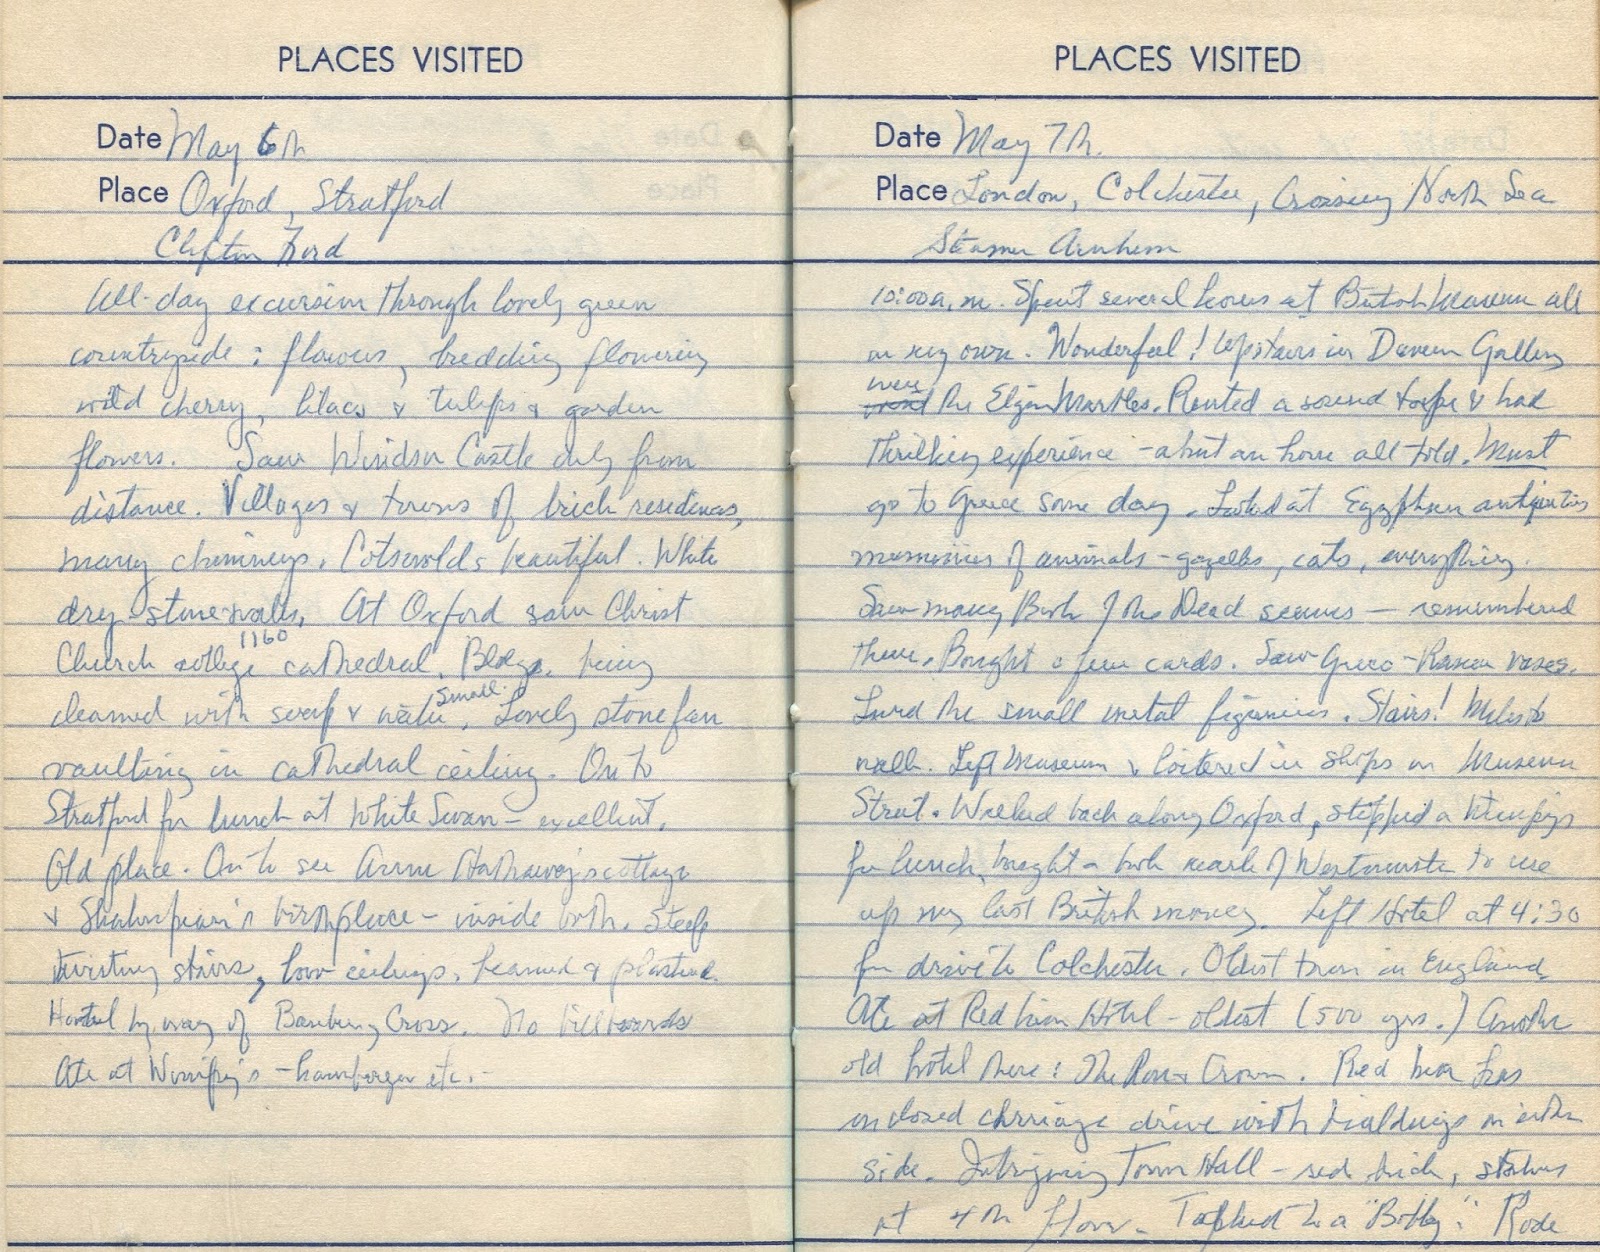 PLACES VISITED
Date May 6th
Place Oxford, Stratford
Clifton Ford
All-day excursion through lovely green
countryside : flowers, bedding flowering
wild cherry, lilacs & tulips & garden
flowers. Saw Windsor Castle only from
distance. Villages & towns of brick residences,
many chimneys. Cotswolds beautiful. White
dry-stone walls. At Oxford saw Christ
Church college 1160 cathedral. Bldgs. being
cleaned with soap & water. Small. Lovely stone fan
vaulting in cathedral ceiling. On to
Stratford for lunch at White Swan - excellent.
Old place. On to see Anne Hathaway's cottage
& Shakespeare's birthplace - inside both. Steep
twisting stairs, low ceilings, beamed & plastered.
Hotel by way of Banbury Cross. No billboards
Ate at Wimpey's - hamburger etc. -
PLACES VISITED
Date May 7th.
Place London, Colchester, Crossing North Sea
Steamer Arnhem
10:00 a.m. Spent several hours at British Museum all
on my own. Wonderful! Upstairs in Duveen Gallery
were the Elgin Marbles. Rented a sound tape & had
thrilling experience - about an hour all told. Must
go to Greece some day. Looked at Egyptian antiquities
mummies of animals - gazelles, cats, everything.
Saw many Book of the Dead scenes - remembered
them. Bought a few cards. Saw Greco-Roman vases.
Loved the small metal figurines. Stairs! Miles to
walk. Left Museum & loitered in shops on Museum
Street. Walked back along Oxford, stopped a Wimpeys
for lunch, bought a book mark of Westminster to use
up my last British money. Left Hotel at 4:30
for drive to Colchester. Oldest town in England.
Ate at Red Lion Hotel - oldest (500 yrs.) Another
old hotel there : The Rose & Crown. Red Lion has
enclosed carriage drive with buildings on either
side. Intriguing Town Hall - red brick, statues
at 4th floor. Talked to a "Bobby". Rode